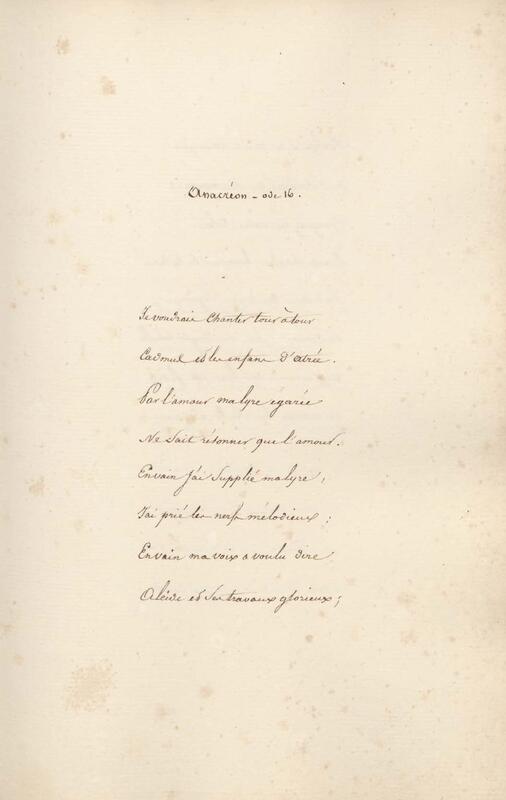 Anacréon - ode 16.
Je voudrais chanter tour à tour
Cadmus et les enfans d'atrée.
Par l'amour ma lyre égarée
Ne sait résonner que l'amour.
En vain J'ai supplié ma lyre,
J'ai prié les nerfs mélodieux;
En vain ma voix a voulu dire
Alcide et ses travaux glorieux;